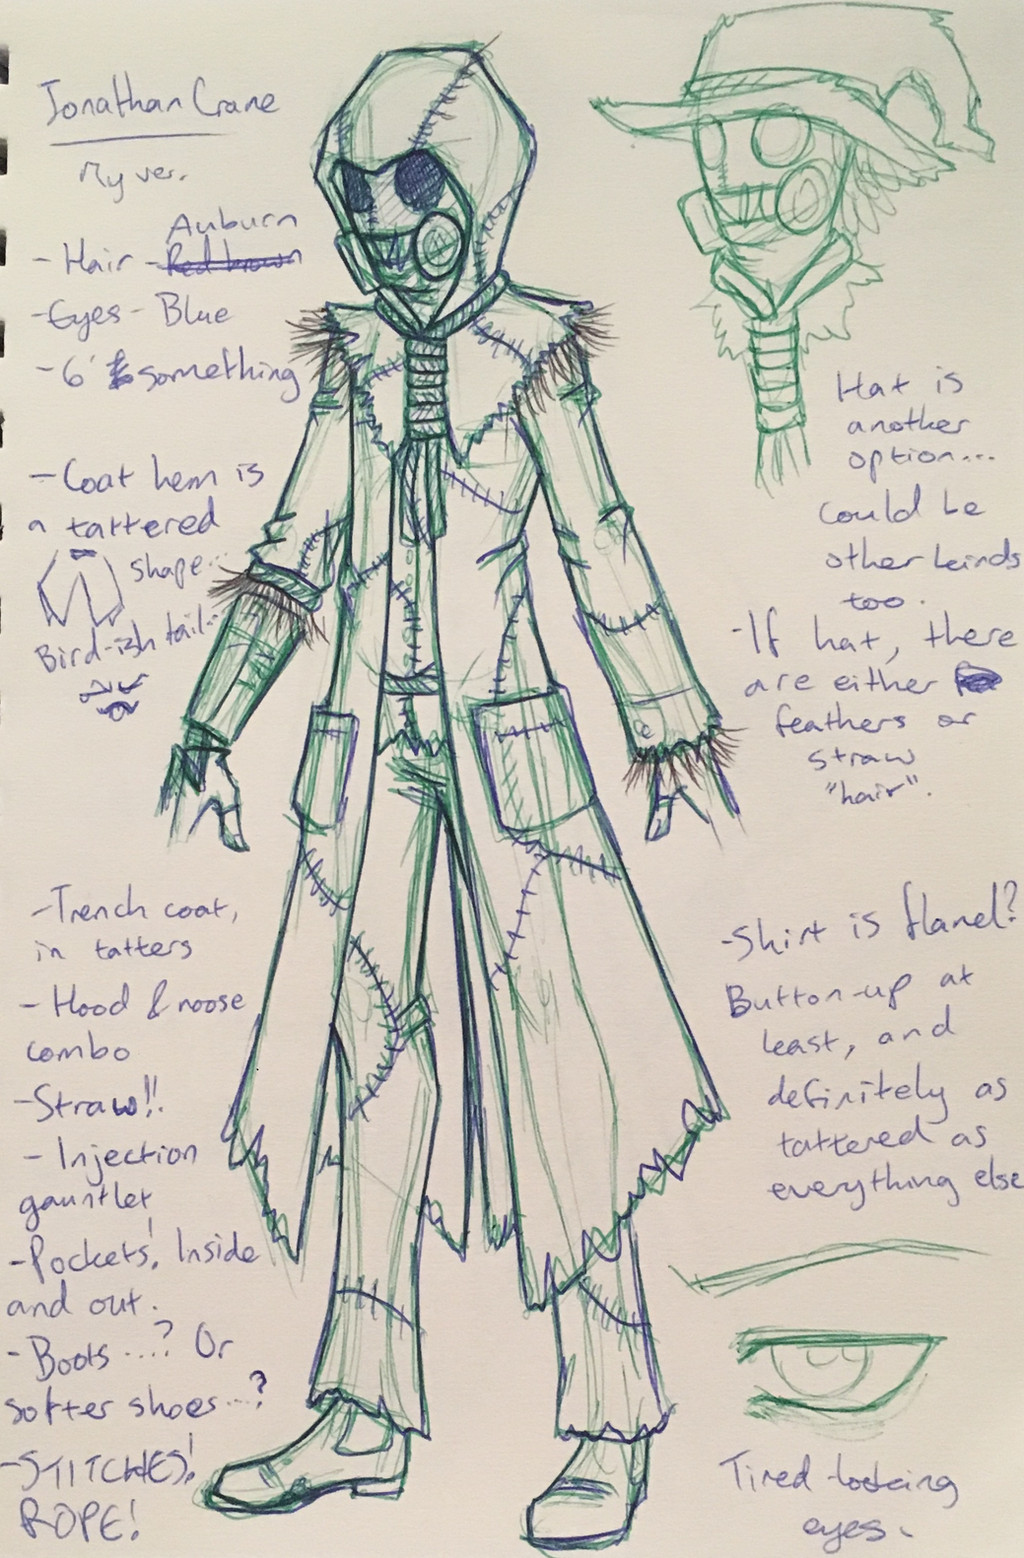 Jonathan Crane
My ver.
Auburn
- Hair - Red brown
- Eyes - Blue
- 6' something
- Coat hem is
a tattered
shape...
Bird-ish tail...
- Trench coat,
in tatters
- Hood & noose
combo
- Straw!!
- Injection
gauntlet
- Pockets! Inside
and out.
- Boots ...? Or
softer shoes...?
- STITCHES!
ROPE!
Hat is
another
option...
Could be
other kinds
too.
- If hat, there
are either
feathers or
straw
"hair".
- Shirt is flanel?
Button-up at
least, and
definitely as
tattered as
everything else
Tired-looking
eyes.